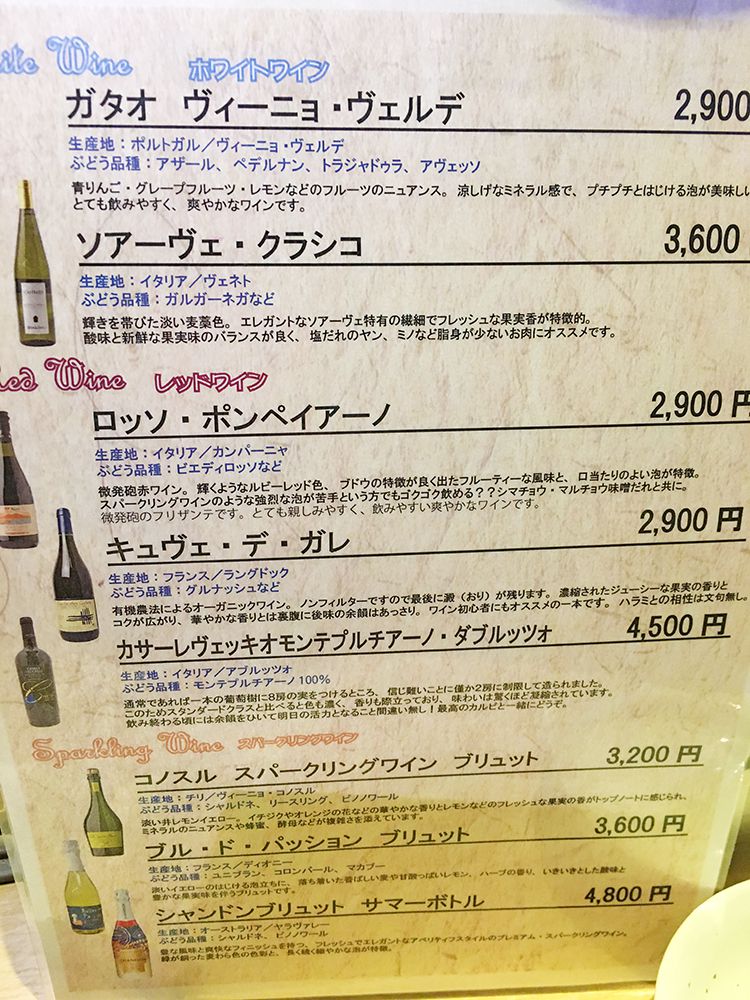 ite Wine ホワイトワイン
ガタオ ヴィーニョ・ヴェルデ 2,900
生産地：ポルトガル／ヴィーニョ・ヴェルデ
ぶどう品種：アザール、ペデルナン、トラジャドゥラ、アヴェッソ
青りんご・グレープフルーツ・レモンなどのフルーツのニュアンス。涼しげなミネラル感で、プチプチとはじける泡が美味しい
とても飲みやすく、爽やかなワインです。
ソアーヴェ・クラシコ 3,600
生産地：イタリア／ヴェネト
ぶどう品種：ガルガーネガなど
輝きを帯びた淡い麦藁色。エレガントなソアーヴェ特有の繊細でフレッシュな果実香が特徴的。
酸味と新鮮な果実味のバランスが良く、塩だれのヤン、ミノなど脂身が少ないお肉にオススメです。
Red Wine レッドワイン
ロッソ・ポンペイアーノ 2,900 円
生産地：イタリア／カンパーニャ
ぶどう品種：ピエディロッソなど
微発砲赤ワイン。輝くようなルビーレッド色、ブドウの特徴が良く出たフルーティーな風味と、口当たりのよい泡が特徴。
スパークリングワインのような強烈な泡が苦手という方でもゴクゴク飲める？？シマチョウ・マルチョウ味噌だれと共に。
微発砲のフリザンテです。とても親しみやすく、飲みやすい爽やかなワインです。
キュヴェ・デ・ガレ 2,900 円
生産地：フランス／ラングドック
ぶどう品種：グルナッシュなど
有機農法によるオーガニックワイン。ノンフィルターですので最後に澱（おり）が残ります。濃縮されたジューシーな果実の香りと
コクが広がり、華やかな香りとは裏腹に後味の余韻はあっさり。ワイン初心者にもオススメの一本です。ハラミとの相性は文句無し。
カサーレヴェッキオモンテプルチアーノ・ダブルッツォ 4,500 円
生産地：イタリア／アブルッツォ
ぶどう品種：モンテプルチアーノ100％
通常であれば一本の葡萄樹に8房の実をつけるところ、信じ難いことに僅か2房に制限して造られました。
このためスタンダードクラスと比べると色も濃く、香りも際立っており、味わいは驚くほど凝縮されています。
飲み終わる頃には余韻をひいて明日の活力となること間違い無し！最高のカルビと一緒にどうぞ。
Sparkling Wine スパークリングワイン
コノスル スパークリングワイン ブリュット 3,200 円
生産地：チリ／ヴィーニョ・コノスル
ぶどう品種：シャルドネ、リースリング、ピノノワール
淡い井レモンイエロー。イチジクやオレンジの花などの華やかな香りとレモンなどのフレッシュな果実の香がトップノートに感じられ、
ミネラルのニュアンスや蜂蜜、酵母などが複雑さを添えています。
ブル・ド・パッション ブリュット 3,600 円
生産地：フランス／ディオニー
ぶどう品種：ユニブラン、コロンバール、マカブー
淡いイエローのはじける泡立ちに、落ち着いた香ばしい麦や甘酸っぱいレモン、ハーブの香り、いきいきとした酸味と
豊かな果実味を伴うブリュットです。
シャンドンブリュット サマーボトル 4,800 円
生産地：オーストラリア／ヤラヴァレー
ぶどう品種：シャルドネ、ピノノワール
豊な風味と爽快なフィニッシュを持つ、フレッシュでエレガントなアペリティフスタイルのプレミアム・スパークリングワイン。
緑が銅った麦わら色の色彩と、長く続く細やかな泡が特徴。